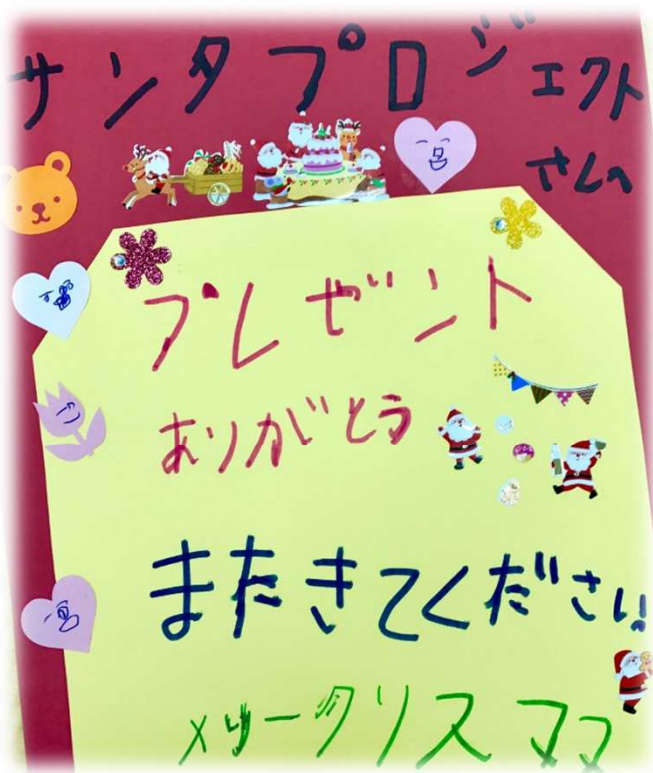 サンタプロジェクト
さんへ
プレゼント
ありがとう
またきてください
メリークリスママ